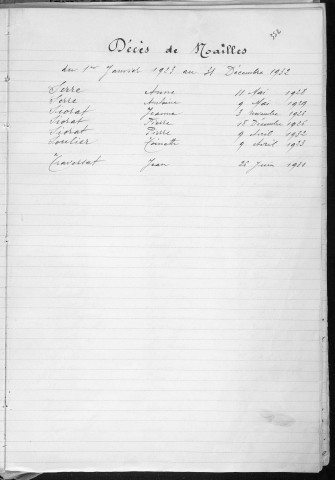 352
Décès de Noailles
du 1er Janvier 1923 au 31 Décembre 1932
Serre Anne 11 Mai 1928
Serre Antoine 9 Mai 1929
Siorat Jeanne 3 novembre 1925
Siorat Pierre 15 Décembre 1926
Siorat Pierre 9 Avril 1932
Soulier Toinette 9 Avril 1923
Traversat Jean 26 Juin 1931